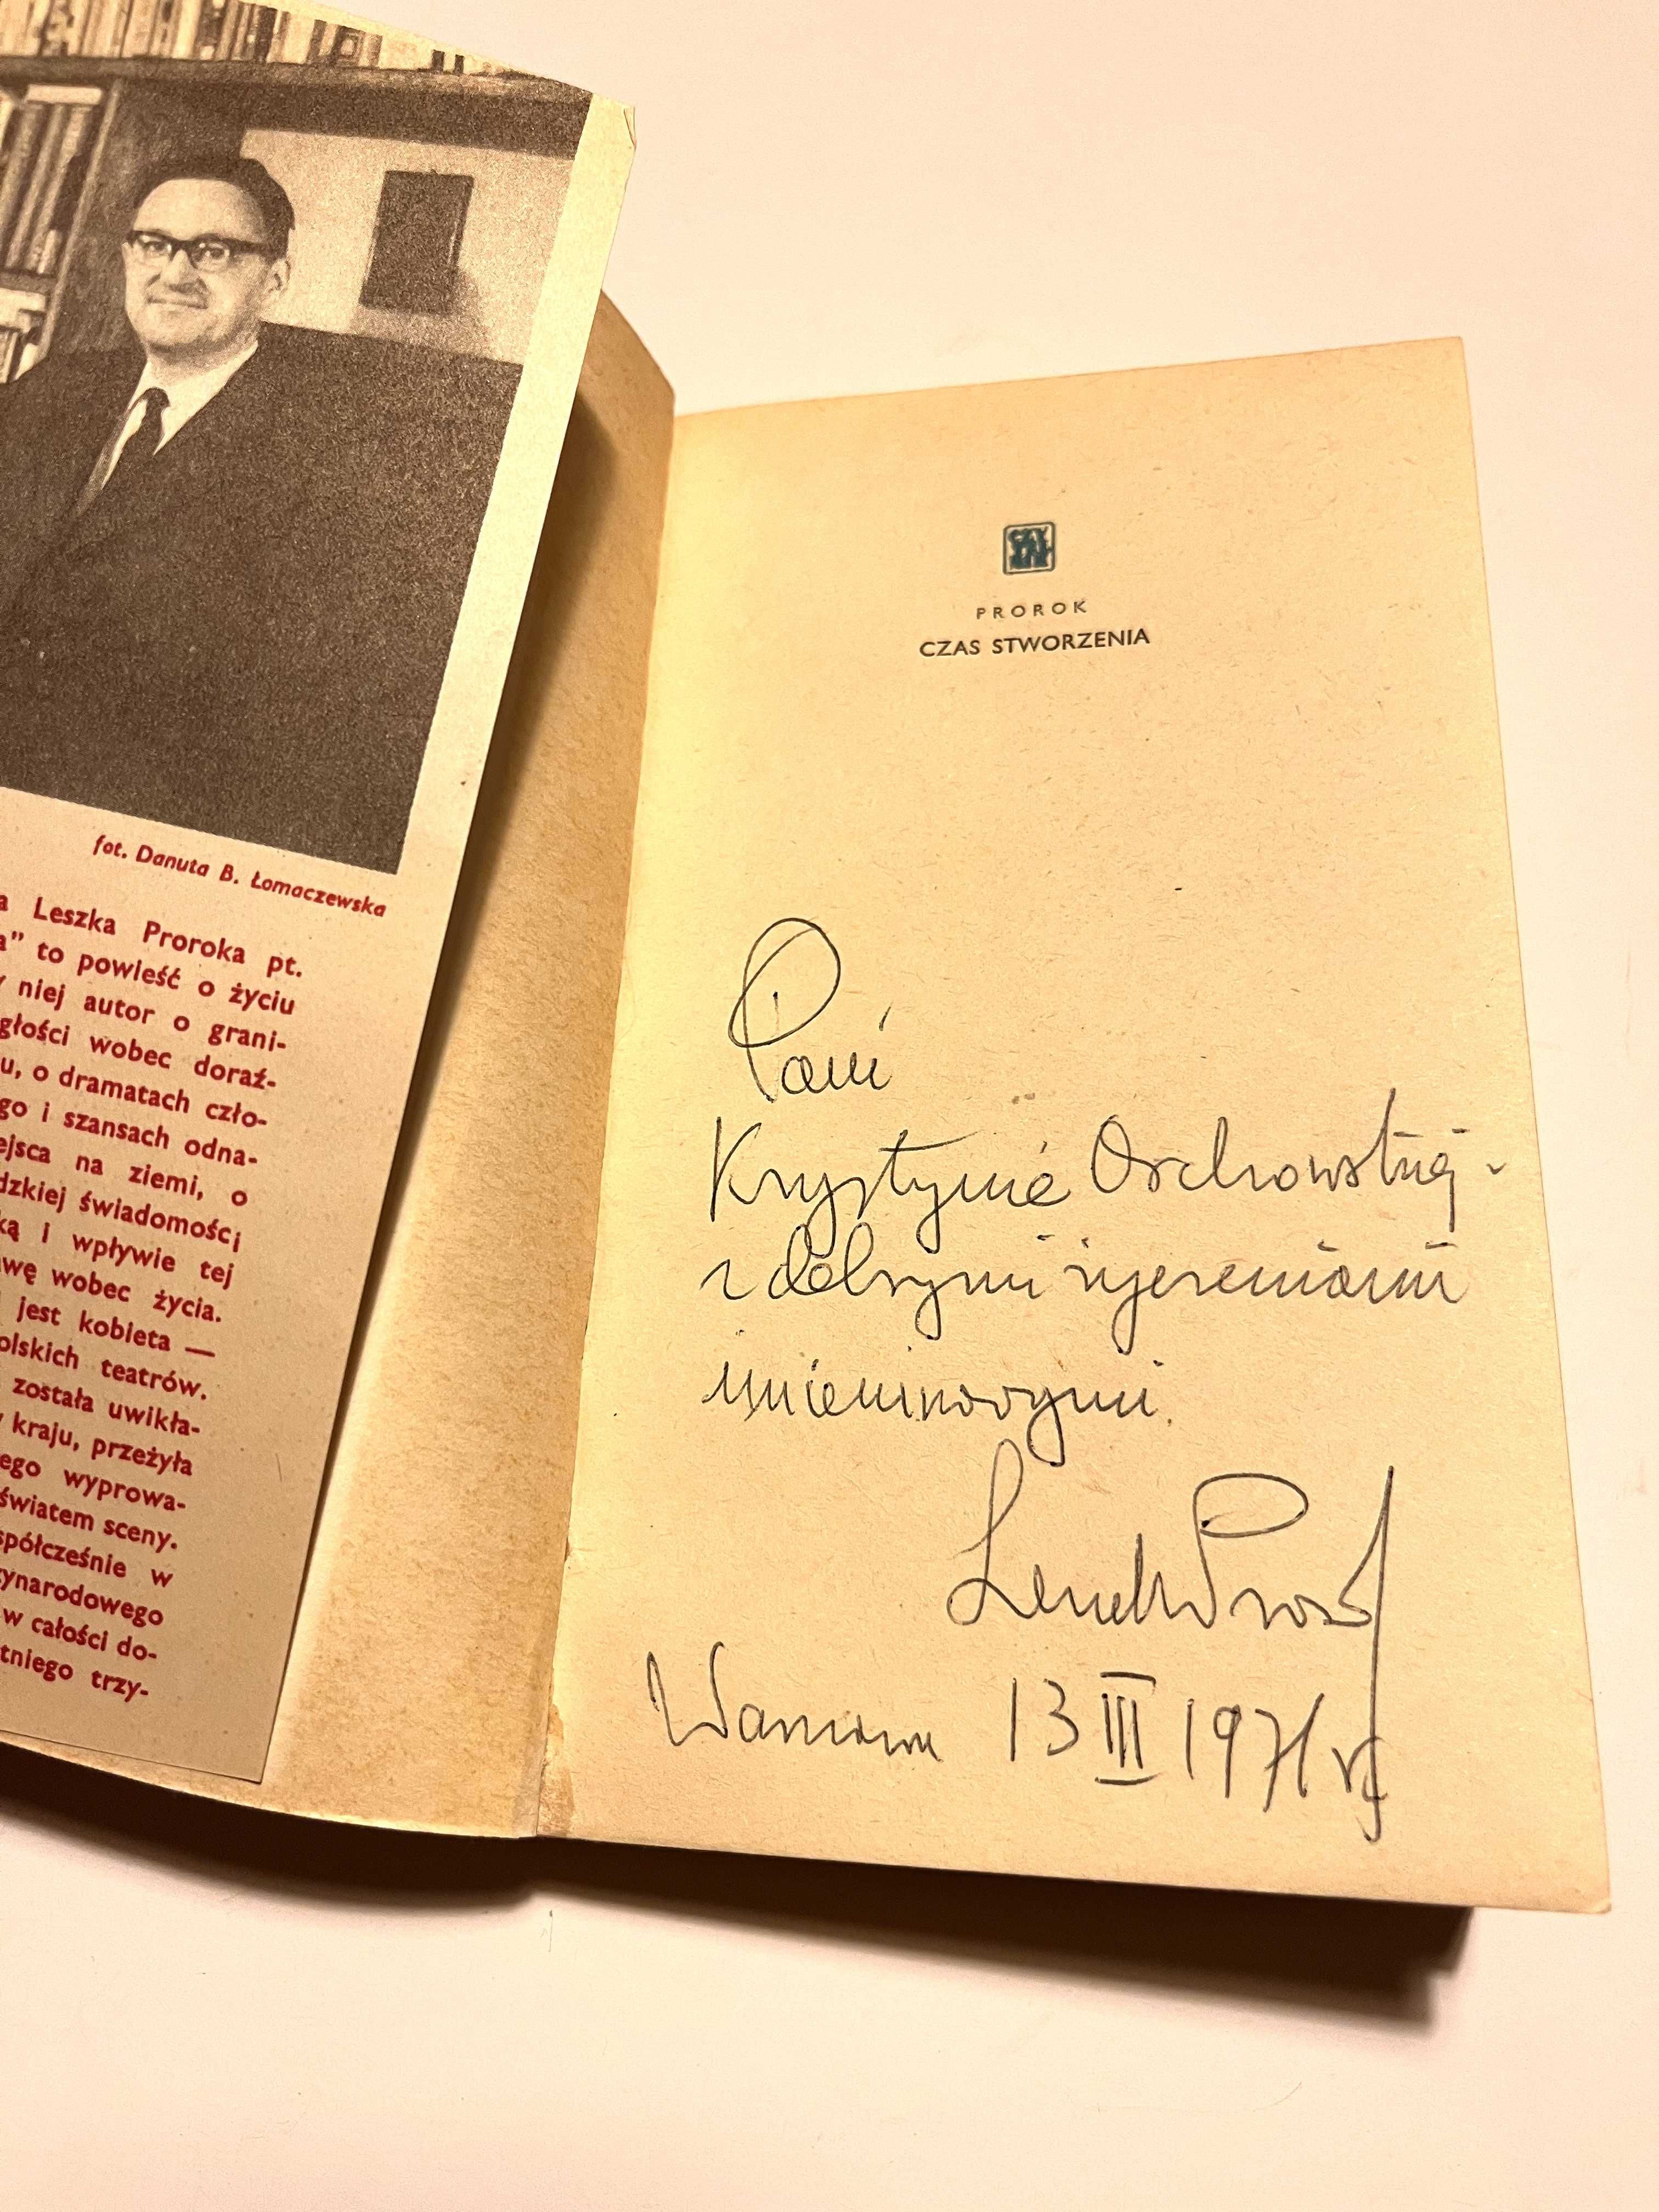 fot. Danuta B. Łomaczewska
a Leszka Proroka pt.
a” to powieść o życiu
niej autor o grani-
głości wobec doraź-
u, o dramatach czło-
go i szansach odna-
ejsca na ziemi, o
dzkiej świadomości
ką i wpływie tej
wę wobec życia.
jest kobieta —
olskich teatrów.
została uwikła-
kraju, przeżyła
ego wyprowa-
światem sceny.
spółcześnie w
zynarodowego
w całości do-
tniego trzy-
CZYTELNIK
PROROK
CZAS STWORZENIA
Pani
Krystynie
z dobrymi życzeniami
imieninowymi.
Leszek Prorok
Warszawa 13 III 1971 r